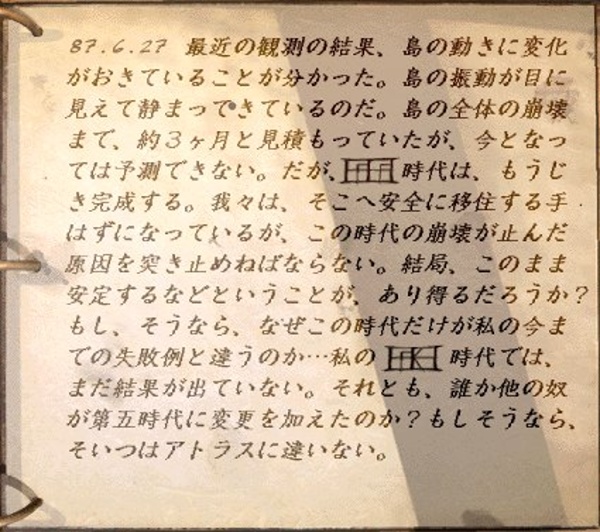 87.6.27 最近の観測の結果、島の動きに変化
がおきていることが分かった。島の振動が目に
見えて静まってきているのだ。島の全体の崩壊
まで、約３ヶ月と見積もっていたが、今となっ
ては予測できない。だが、時代は、もうじ
き完成する。我々は、そこへ安全に移住する手
はずになっているが、この時代の崩壊が止んだ
原因を突き止めねばならない。結局、このまま
安定するなどということが、あり得るだろうか？
もし、そうなら、なぜこの時代だけが私の今ま
での失敗例と違うのか…私の時代では、
まだ結果が出ていない。それとも、誰か他の奴
が第五時代に変更を加えたのか？もしそうなら、
そいつはアトラスに違いない。